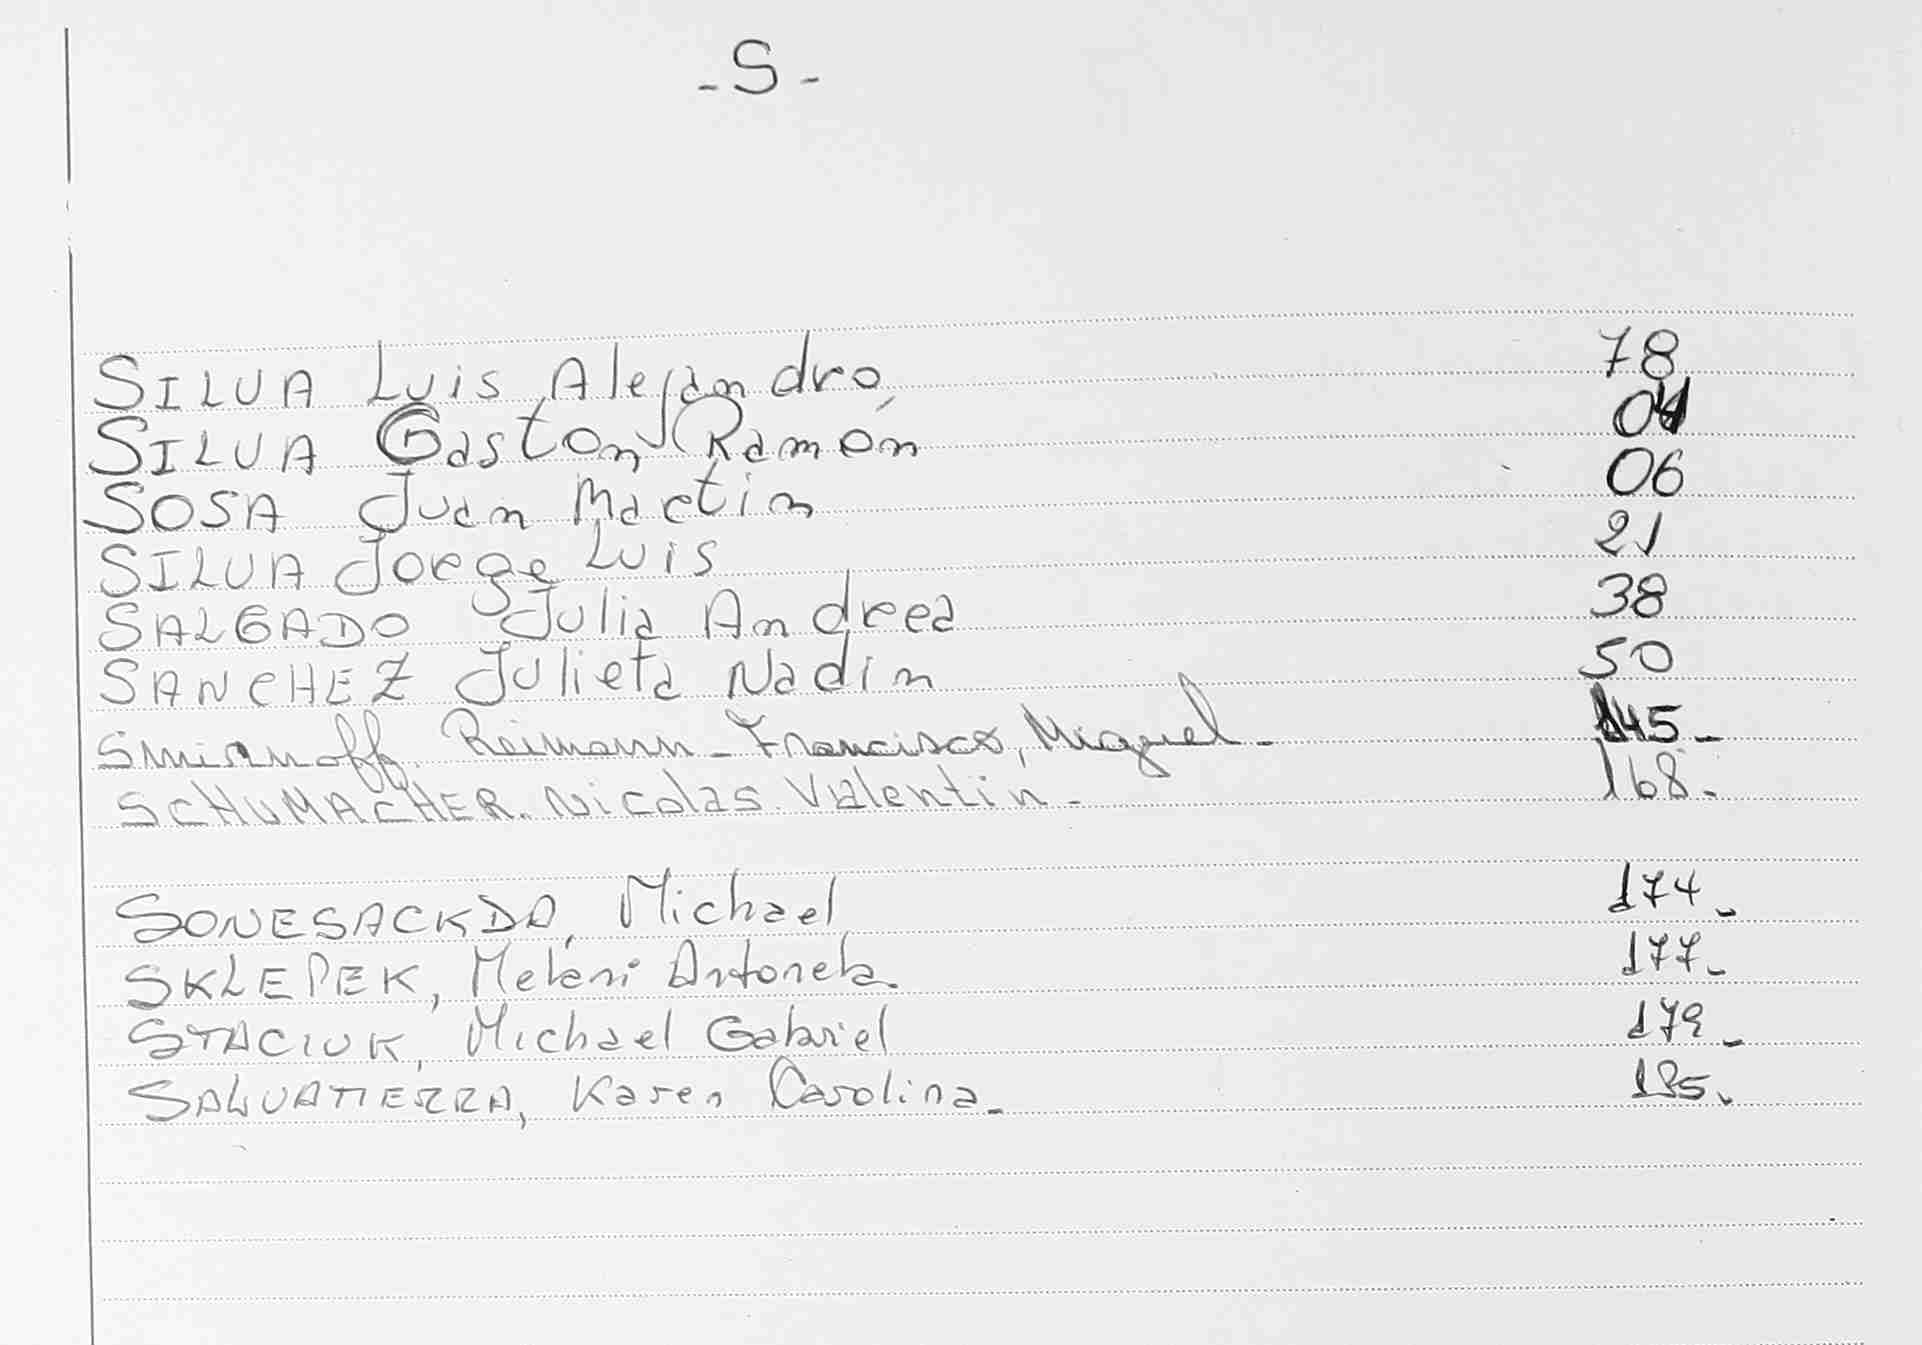 - S -
SILVA Luis Alejandro 78
SILVA Gastón Ramón
SOSA Juan Martin 06
SILVA Jorge Luis 21
SALGADO Julia Andrea 38
SANCHEZ Julieta Nadin 50
Smirnoff Reimann - Francisco, Miguel - 145 -
SCHUMACHER. Nicolas Valentin - 168 -
SONESACKDA, Michael 174 -
SKLEPEK, Melani Antonela 177 -
STACIUK, Michael Gabriel 179 -
SALVATIERRA, Karen Carolina -